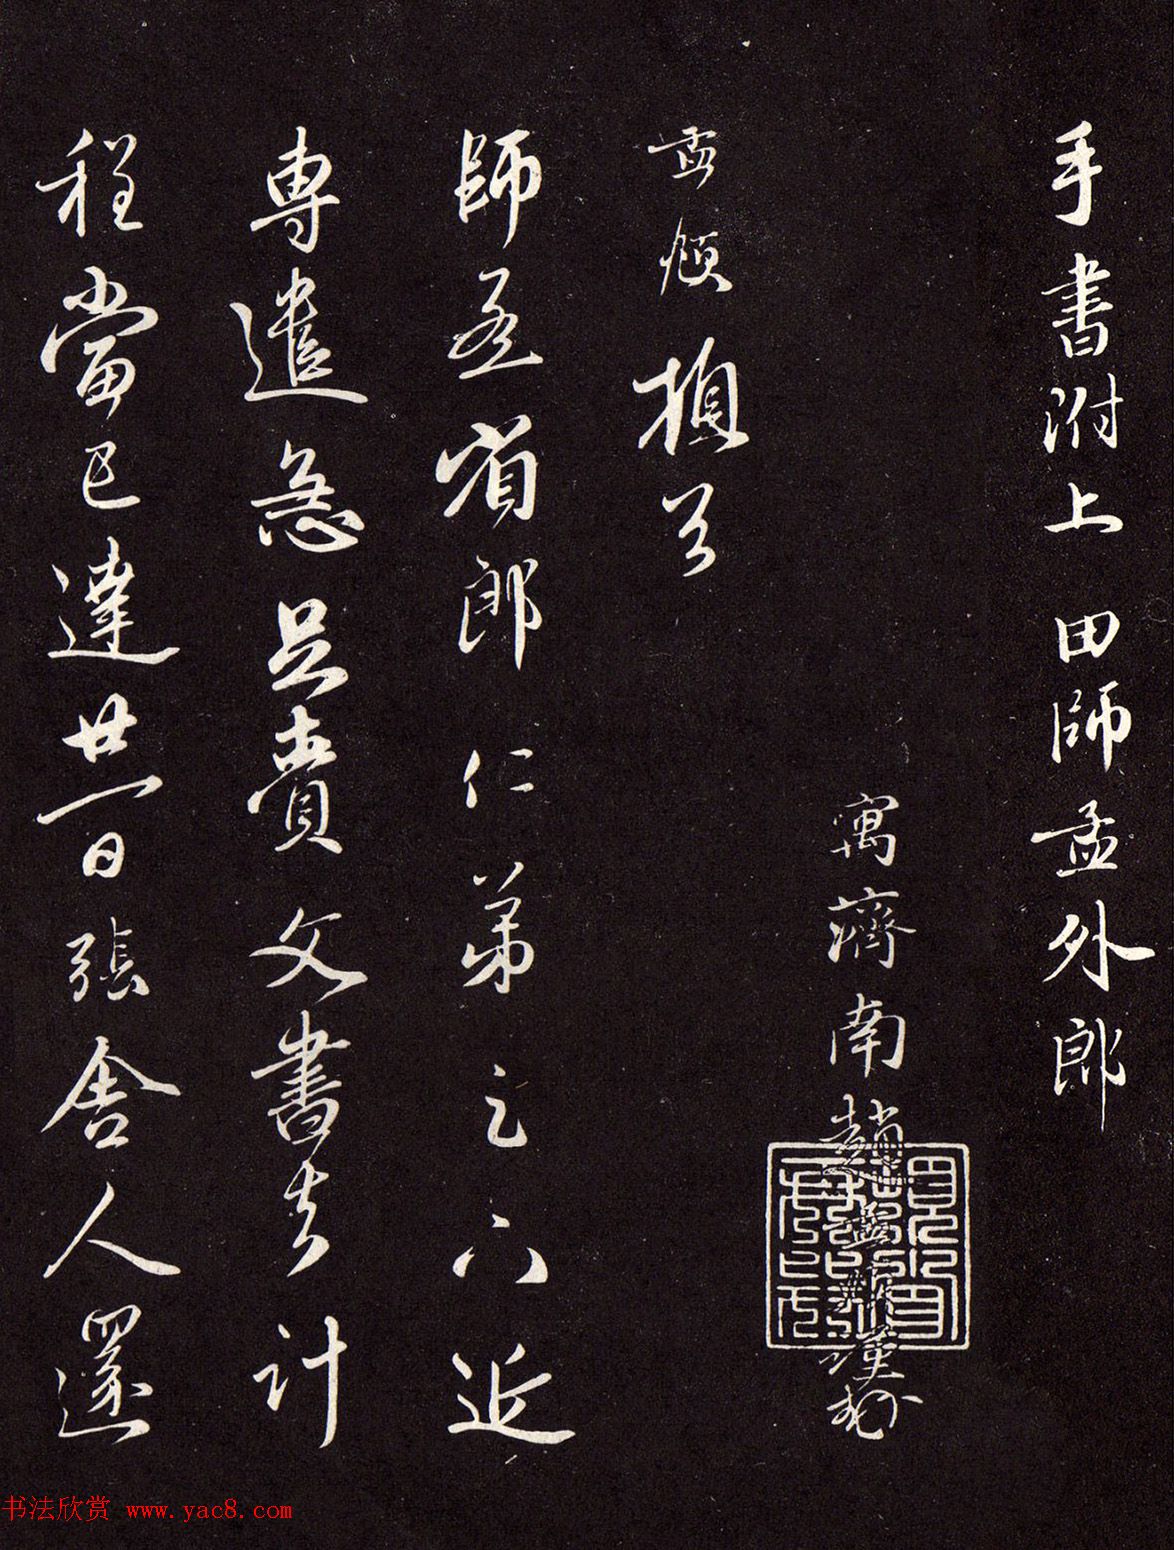 手書附上田師孟外郎
寓濟南趙孟頫謹封
孟頫頓首
師孟省郎仁弟足下近
專遣急足賫文書去計
程當已達廿一日張舍人還
书法欣赏 www.yac8.com